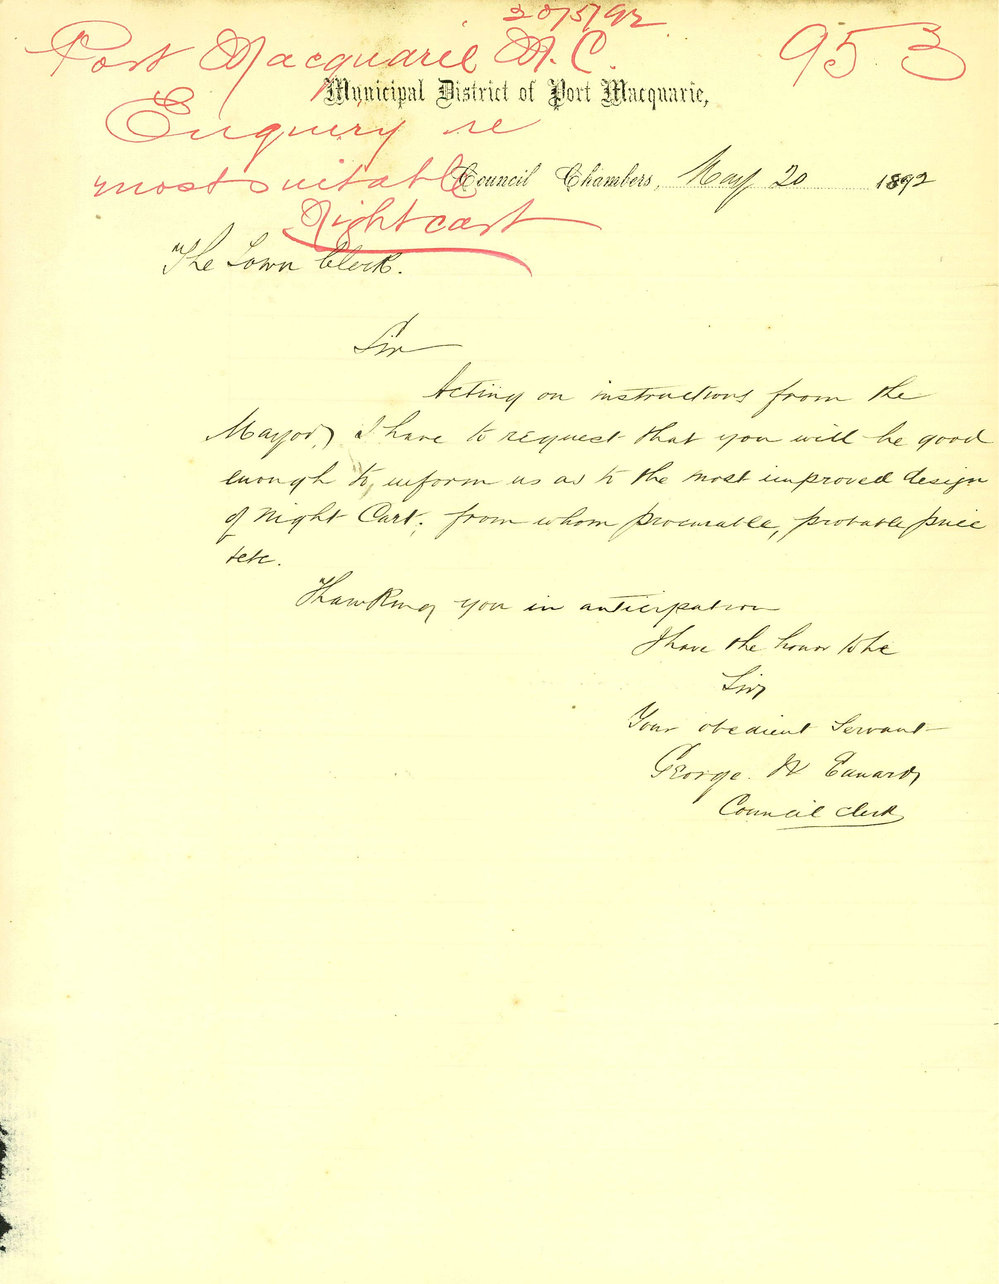 20/5/92
Port Macquarie M.C. 953
Municipal District of Port Macquarie,
Enquiry re
most suitable
Council Chambers, May 20 1892
Nightcart
The Town Clerk.
Sir
Acting on instructions from the
Mayor, I have to request that you will be good
enough to inform us as to the most improved design
of Night Cart, from whom procurable, probable price
etc.
Thanking you in anticipation
I have the honor to be
Sir
Your obedient Servant
George
Council Clerk